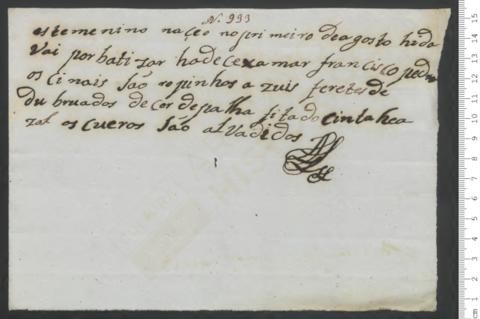 N. 993
este menino naçeo no primeiro de agosto hida
Vai por bati zar ha de ce xa mar francisco
os cinais são ropinhos a zuis feretes de
du bruados de cor de palha fitado cinta hea
zal os cueros são alvadidos